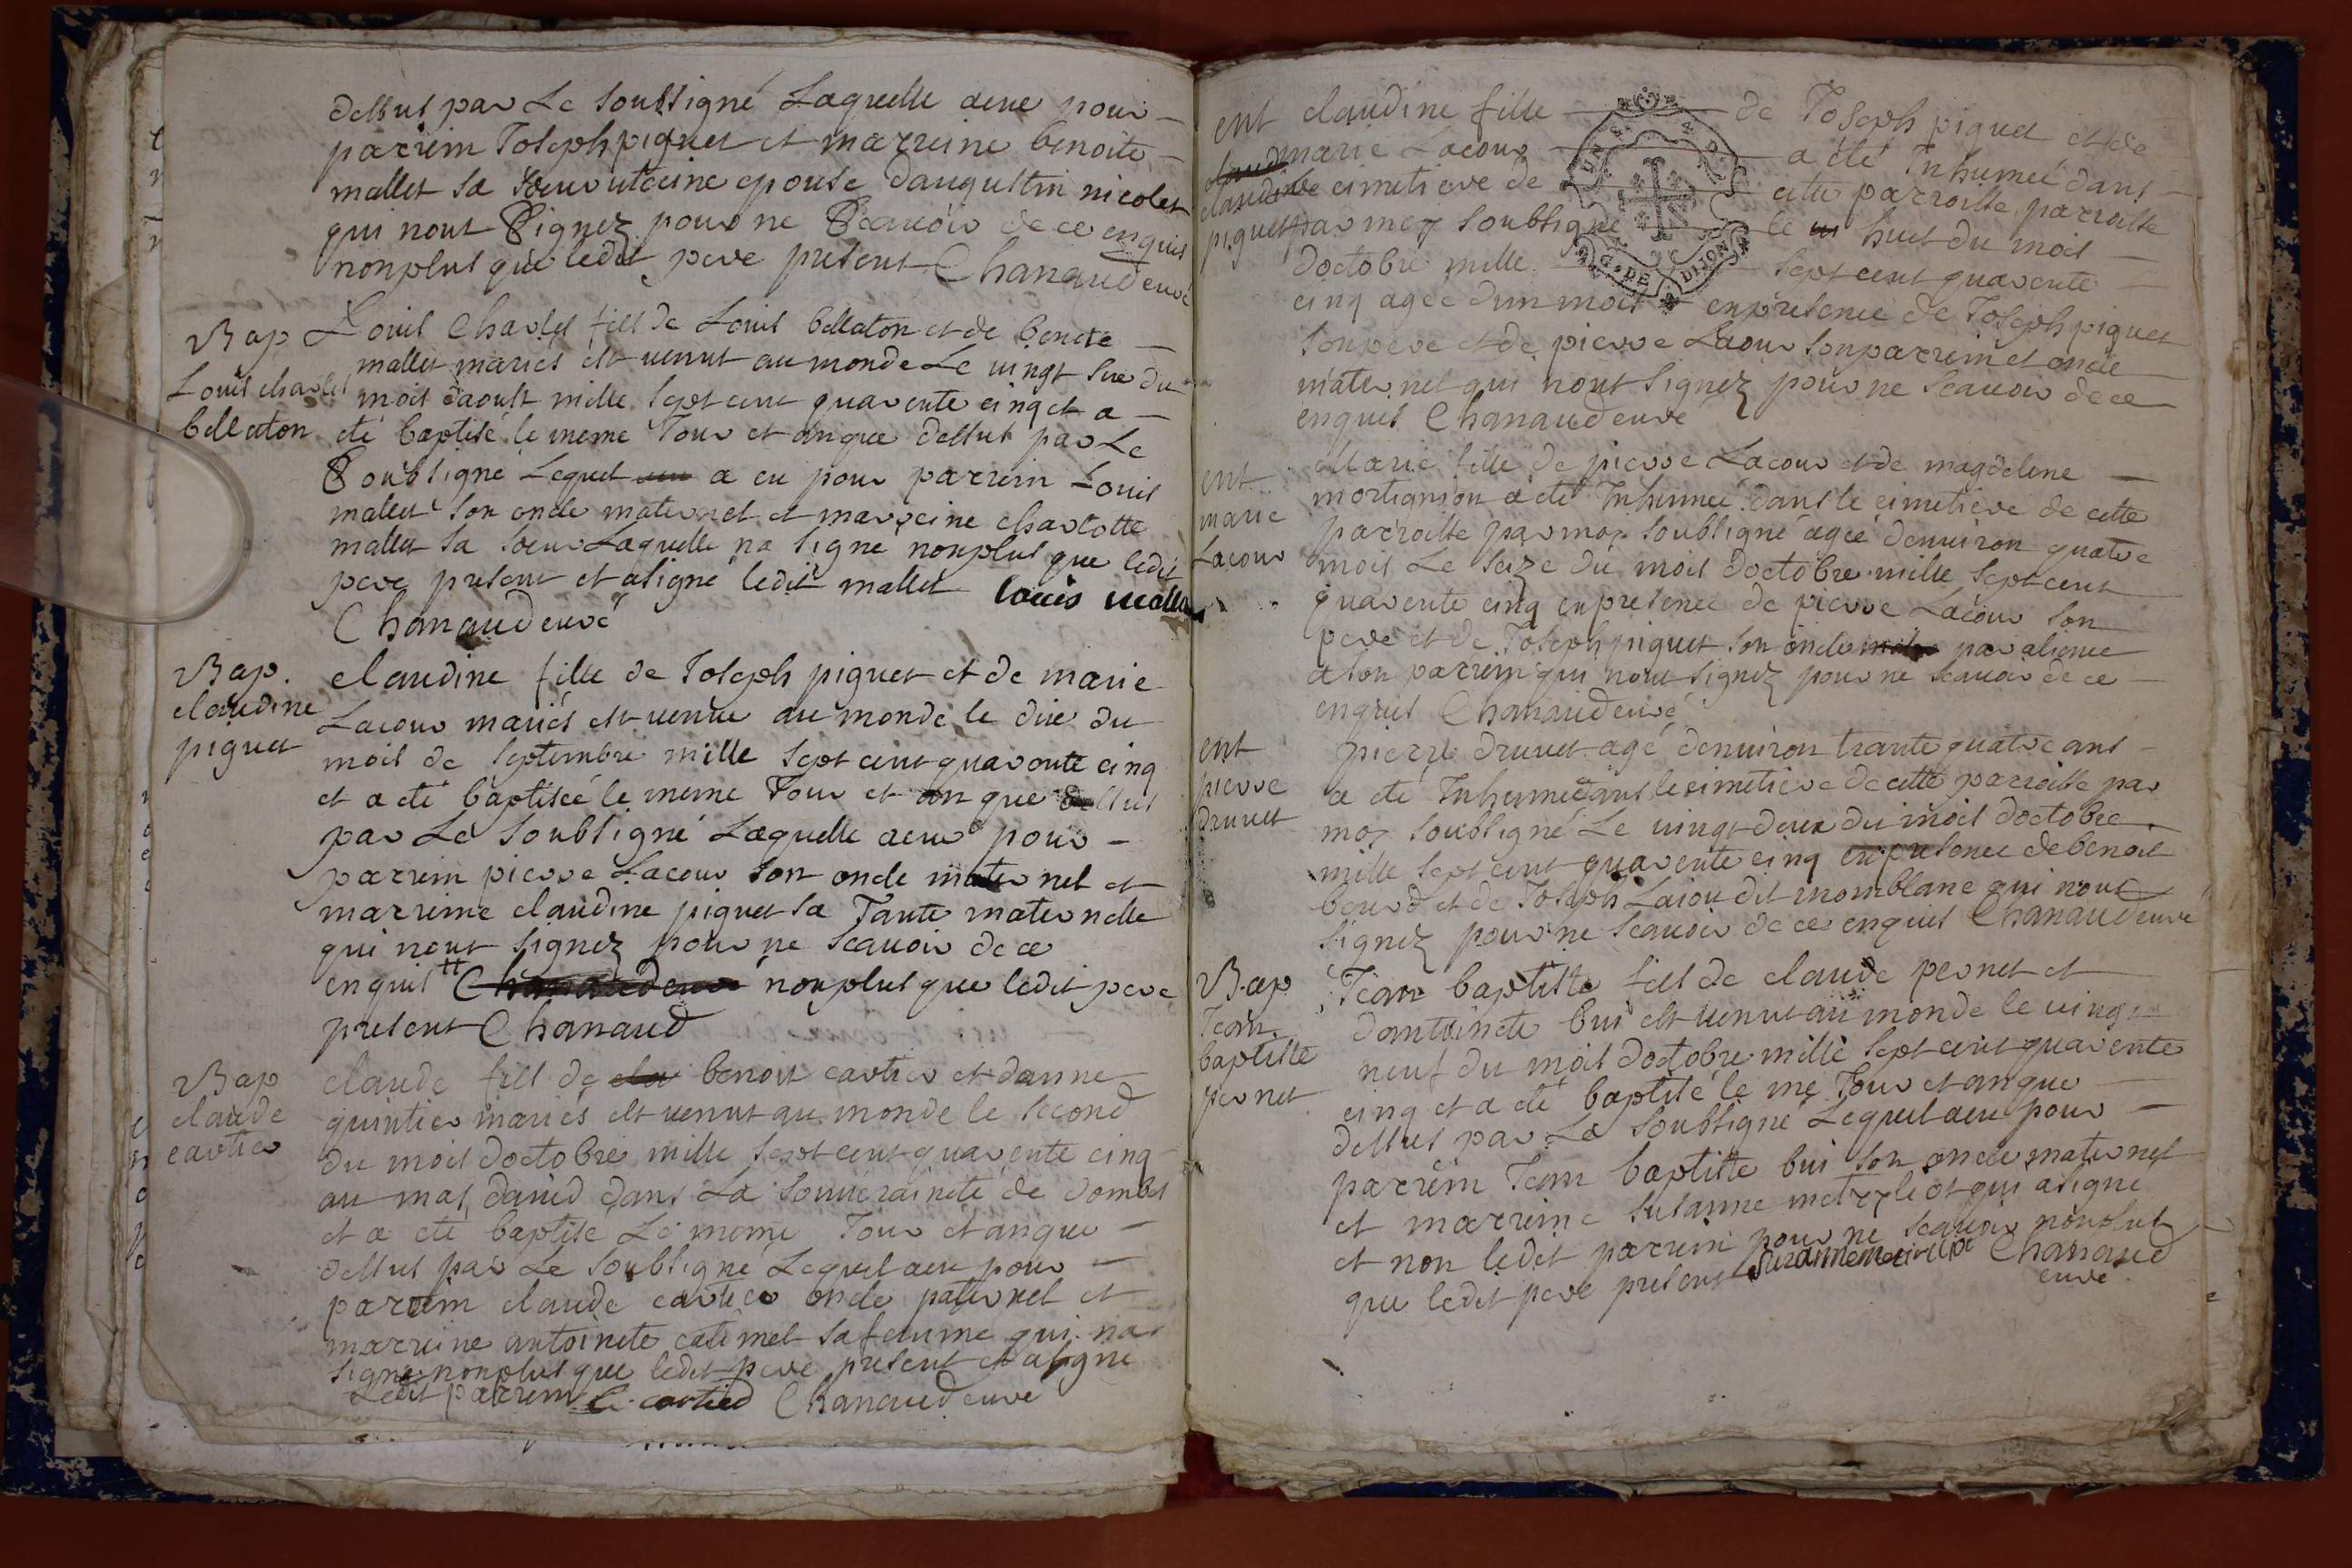 dessus par Le soussigné Laquelle aeue pour
parrein Joseph piguet et marreine benoite
mallet sa soeur uterine epouse daugustin nicolet
qui nont Signez pour ne Scauoir de ce enquis
nonplus que ledit pere present Chanaud curé
Bap
Louis charles
bellaton
Louis Charles fils de Louis bellaton et de benote
mallet mariés est uenus au monde Le uingt sixe du
mois daoust mille sept cent quarente cinq et a
été baptisé le meme Jour et anque dessus par Le
Soubsigné Lequel a eu pour parrein Louis
mallet son oncle maternel et marreine charlotte
mallet sa soeur Laquelle na signé nonplus que ledit
pere present et asigné ledit mallet Louis malle
Chanaud curé
Bap.
claudine
piguet
claudine fille de Joseph piguet et de marie
Lacour mariés est uenue au monde le dixe du
mois de septembre mille sept cent quarente cinq
et a été baptisée le meme Jour et an que dessus
par Le soubsigné Laquelle aeu pour
parrein pierre Lacour son oncle maternel et
marreine claudine piguet sa Tante maternelle
qui nont signez pour ne scauoir de ce
enquis Chanaud curé nonplus que ledit pere
present Chanaud
Bap
claude
cartier
claude fils de cla benoit cartier et danne
quintier mariés est uenus au monde le second
du mois doctobre mille sept cent quarente cinq
au mas daried dans La souueraineté de dombes
et a été baptisé Le meme Jour et anque
dessus par Le soubsigné Lequel aeu pour
parrein claude cartier oncle paternel et
marreine antoinete catimel sa femme qui na
signe nonplus que ledit pere present et asigné
Ledit parrein C. cartied Chanaud curé
ent
claudine
piguet
claudine fille de Joseph piguet et de
marie Lacour a été Inhumée dans
le cimetiere de cette parroisse parroisse
par moy soubsigné le huit du mois
doctobre mille sept cent quarente
cinq agée dun mois enpresence de Joseph piguet
son pere et de pierre Lacour son parrein et oncle
maternel qui nont signez pour ne scauoir de ce
enquis Chanaud curé
G. DE DIJON
ent
marie
Lacour
Marie fille de pierre Lacour et de magdelene
mortamion a été Inhumée dans le cimetiere de cette
parroisse par moy soubsigné agée denuiron quatre
mois Le seize du mois doctobre mille sept cent
quarente cinq enpresence de pierre Lacour son
pere et de Joseph piguet son oncle par alience
et son parrein qui nont signez pour ne scauoir de ce
enquis Chanaud curé
ent
pierre
druuet
pierre druuet agé denuiron trante quatre ans
a été Inhumé dans le cimetiere de cette parroisse par
moy soubsigné Le uingt deux du mois doctobre
mille sept cent quarente cinq enpresence de benoit
beurd et de Joseph Laiou dit momblanc qui nont
signez pour ne scauoir de ce enquis Chanaud curé
Bap
Jean
baptiste
pernet
Jean baptiste fils de claude pernet et
dantoinete bui est uenus au monde le uingt
neuf du mois doctobre mille sept cent quarente
cinq et a été baptisé le me Jour et anque
dessus par Le soubsigné Lequel aeu pour
parrein Jean baptiste bui son oncle maternel
et marreine susanne qui asigné
et non ledit parrein pour ne scauoir nonplus
que ledit pere present Chanaud
curé